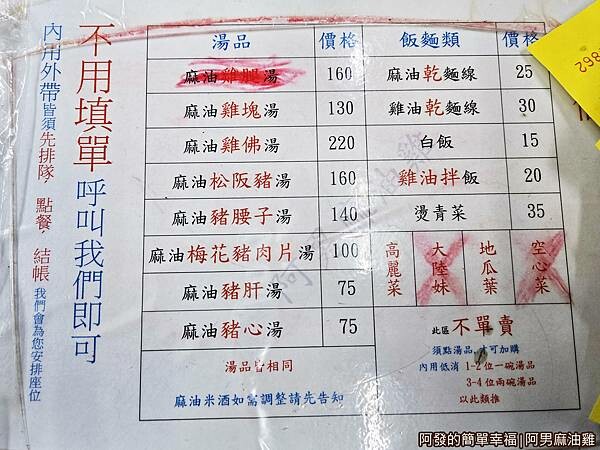 不用填單 呼叫我們即可
內用外帶皆須先排隊，點餐，結帳 我們會為您安排座位
湯品 價格 飯麵類 價格
麻油雞腿湯 160 麻油乾麵線 25
麻油雞塊湯 130 雞油乾麵線 30
麻油雞佛湯 220 白飯 15
麻油松阪豬湯 160 雞油拌飯 20
麻油豬腰子湯 140 燙青菜 35
麻油梅花豬肉片湯 100 高麗菜 大陸妹 地瓜葉 空心菜
麻油豬肝湯 75
麻油豬心湯 75
此區不單賣
湯品皆相同
須點湯品,才可加購
內用低消 1-2 位一碗湯品
3-4 位兩碗湯品
麻油米酒如需調整請先告知
以此類推
862
阿發的簡單幸福|阿男麻油雞